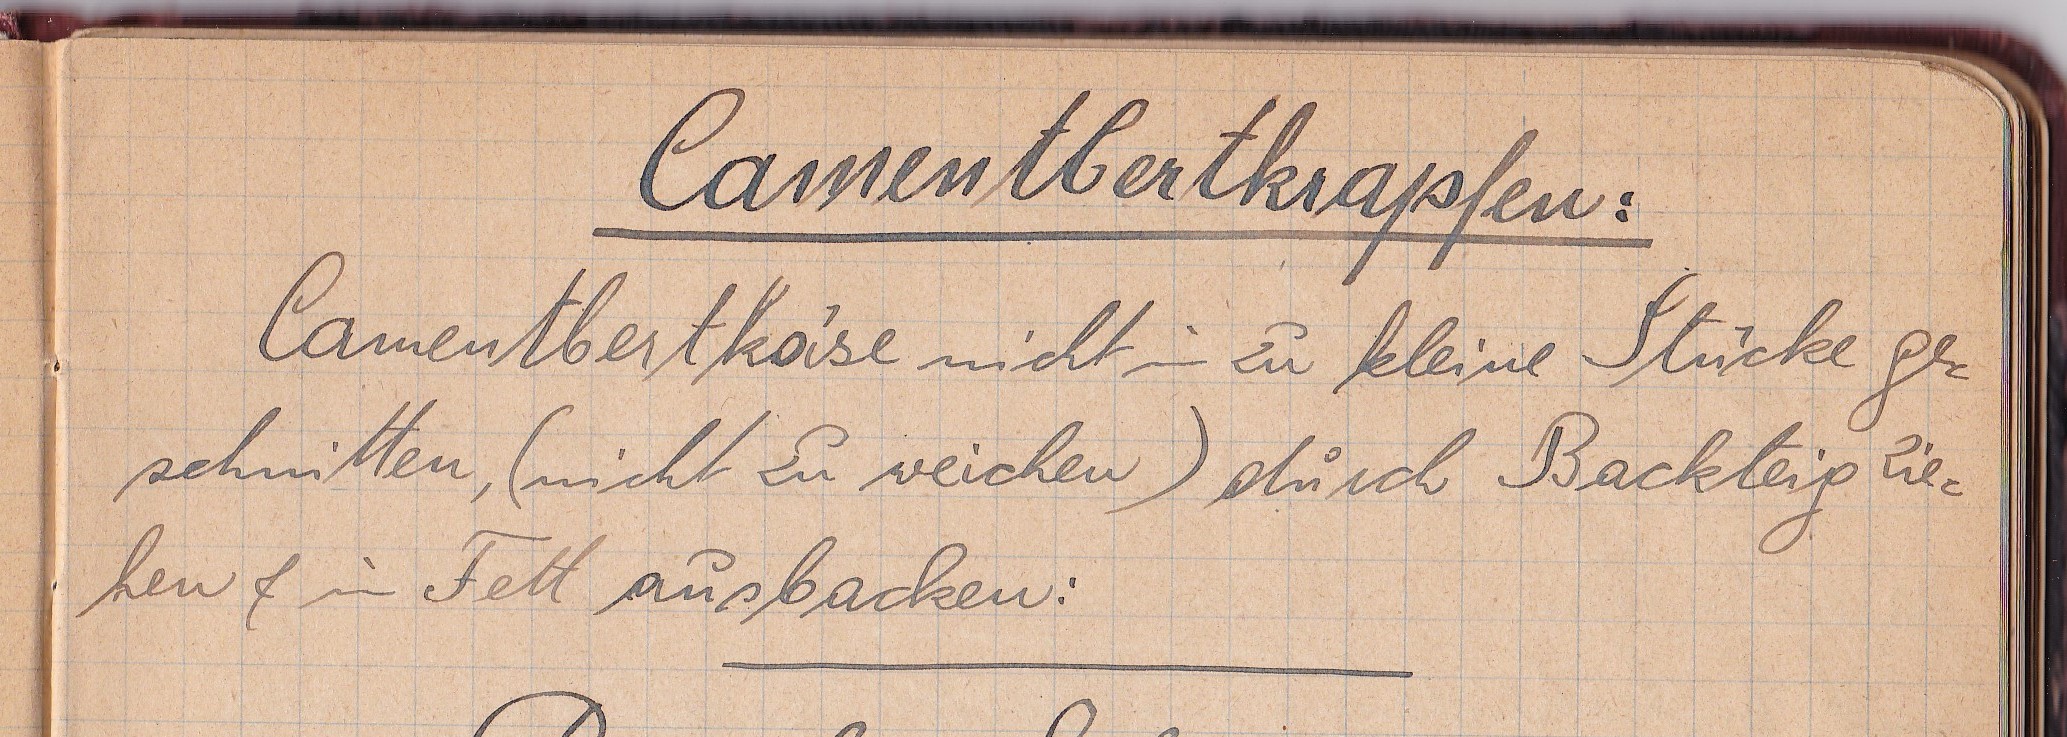 Camentbertkrapfen:
Camentbertkäse nicht in zu kleine Stücke ge-
schnitten, (nicht zu weichen) durch Backteig zie-
hen & in Fett ausbacken: